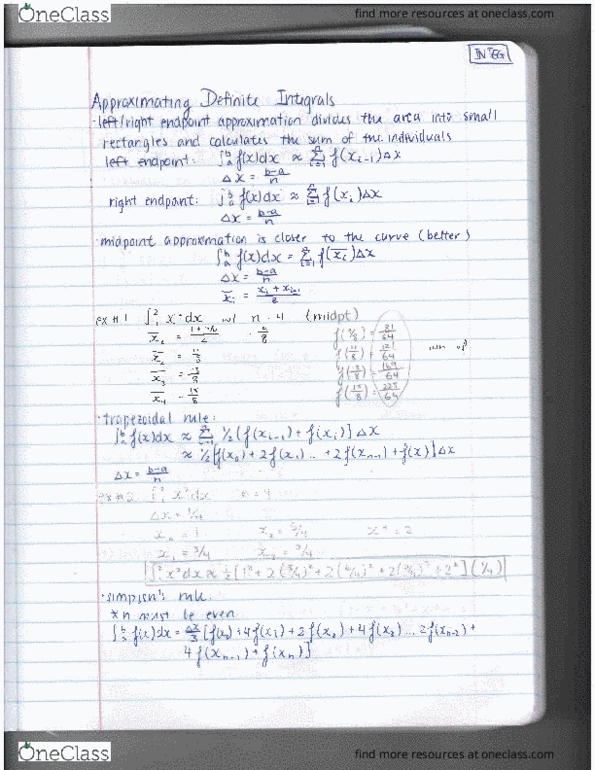 OneClass
find more resources at oneclass.com
INTEG
Approximating Definite Integrals
·left/right endpoint approximation divides the area into small
rectangles and calculates the sum of the individuals
left endpoint: ∫ₐᵇ f(x)dx ≈ Σⁿᵢ₌₁ f(xᵢ₋₁)Δx
Δx = b-a/n
right endpoint: ∫ₐᵇ f(x)dx ≈ Σⁿᵢ₌₁ f(xᵢ)Δx
Δx = b-a/n
·midpoint approximation is closer to the curve (better)
∫ₐᵇ f(x)dx = Σⁿᵢ₌₁ f(x̄ᵢ)Δx
Δx = b-a/n
ex #1 ∫₁² x² dx w/ n = 4 (midpt)
f(9/8) = 81/64
f(11/8) = 121/64
f(13/8) = 169/64
f(15/8) = 225/64
·trapezoidal rule:
∫ₐᵇ f(x)dx ≈ Σⁿᵢ₌₁ 1/2 [f(xᵢ₋₁) + f(xᵢ)] Δx
≈ 1/2 [f(x₀) + 2f(x₁) ... + 2f(xₙ₋₁) + f(x)] Δx
Δx = b-a/n
ex #2 ∫₁² x² dx n = 4
Δx = 1/4
·simpson's rule:
*n must be even
∫ₐᵇ f(x)dx = Δx/3 [f(x₀) + 4f(x₁) + 2f(x₂) + 4f(x₃) ... 2f(xₙ₋₂) +
4f(xₙ₋₁) + f(xₙ)]
OneClass
find more resources at oneclass.com